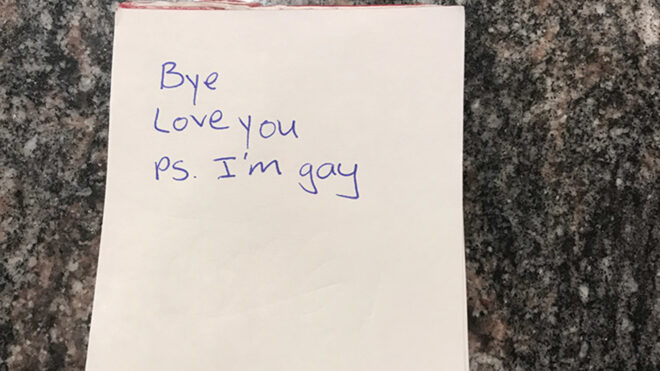 Bye
Love you
Ps. I'm gay